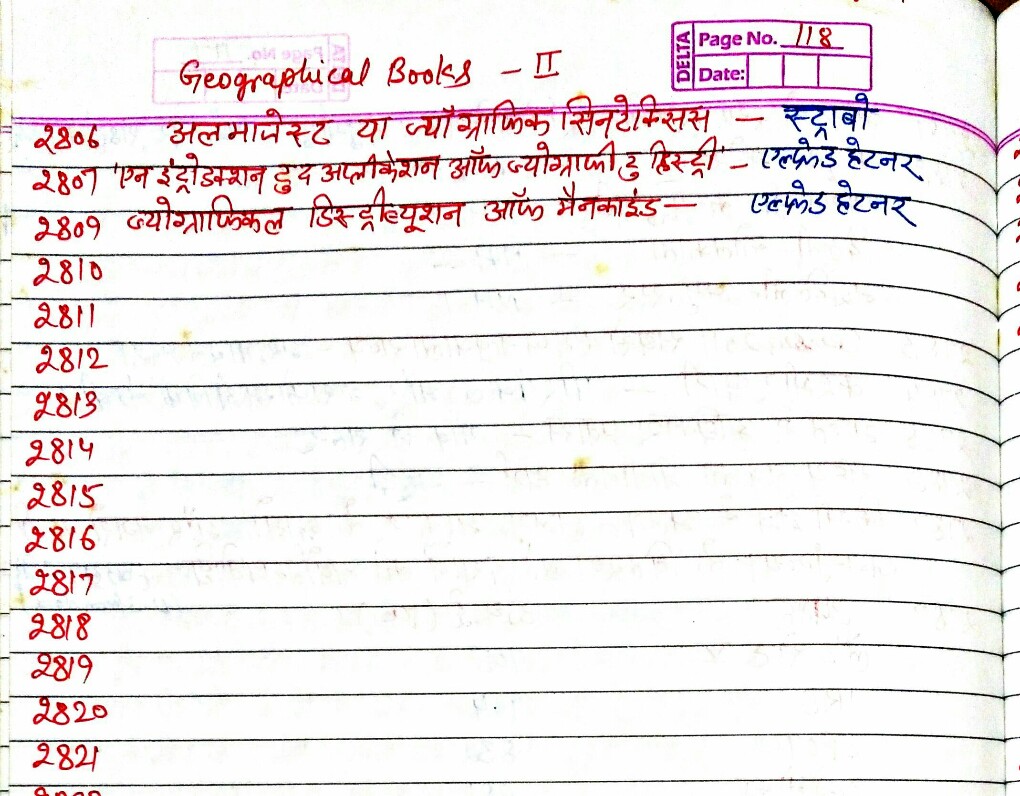 DELTA Page No. 118
Date:
Geographical Books - II
2806 अलमाजेस्ट या ज्यॉग्राफिक सिनटेक्सिस - स्ट्राबो
2807 'एन इंट्रोडक्शन टु द अप्लीकेशन ऑफ ज्योग्राफी टु हिस्ट्री' - एल्फ्रेड हेटनर
2809 ज्योग्राफिकल डिस्ट्रीब्यूशन ऑफ मैनकाइंड - एल्फ्रेड हेटनर
2810
2811
2812
2813
2814
2815
2816
2817
2818
2819
2820
2821